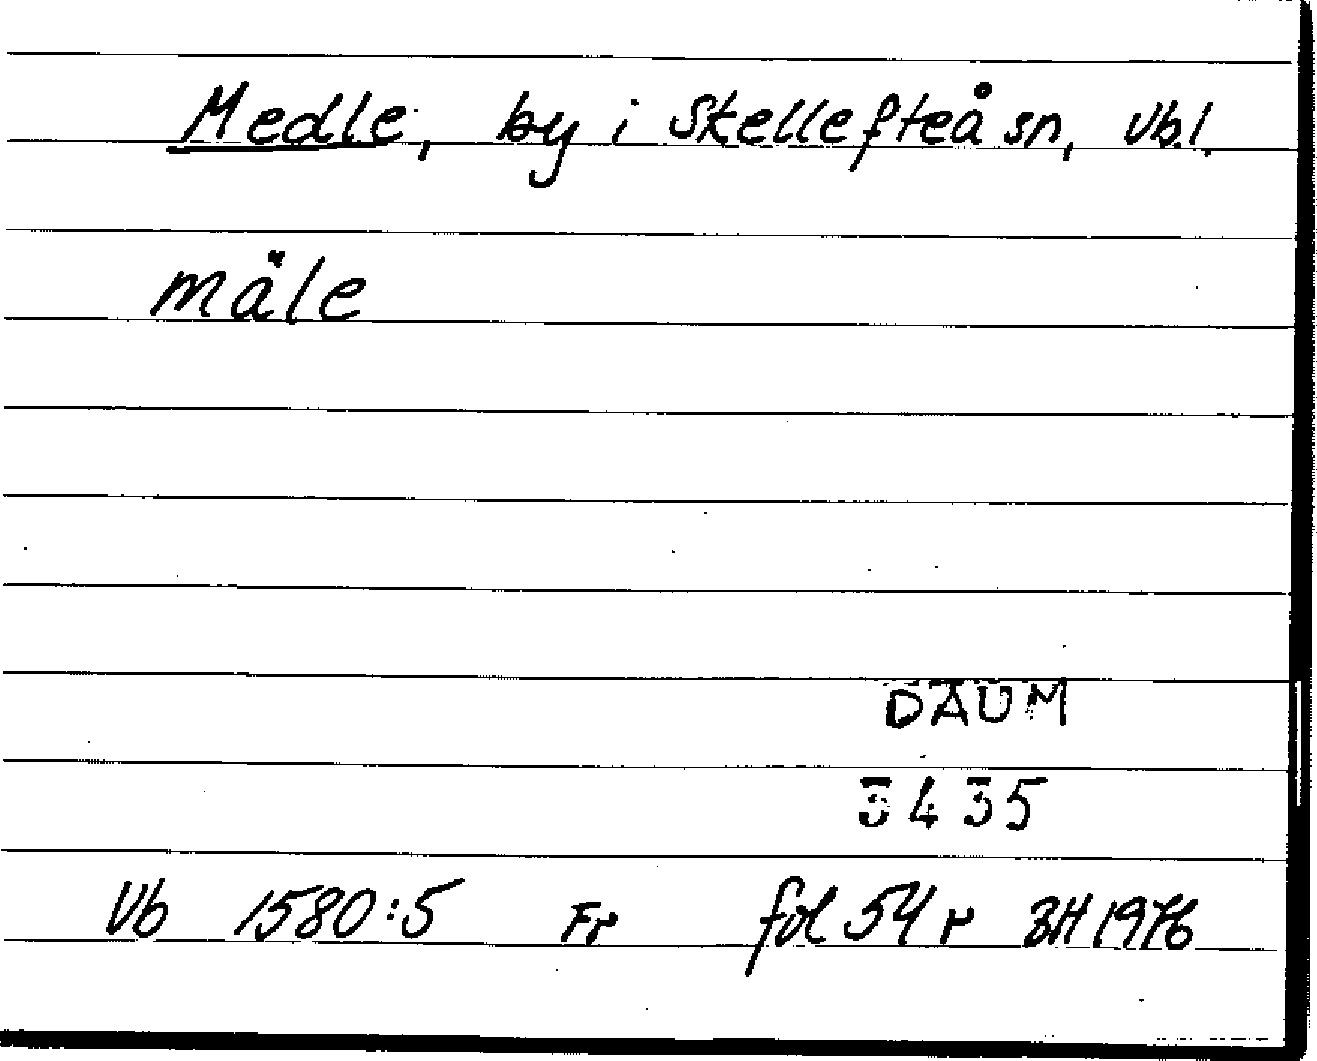 Medle, by i Skellefteå sn, Vb.l.
mäle
DAUM
3435
Vb 1580:5 Fr fol 54 r BH 1976